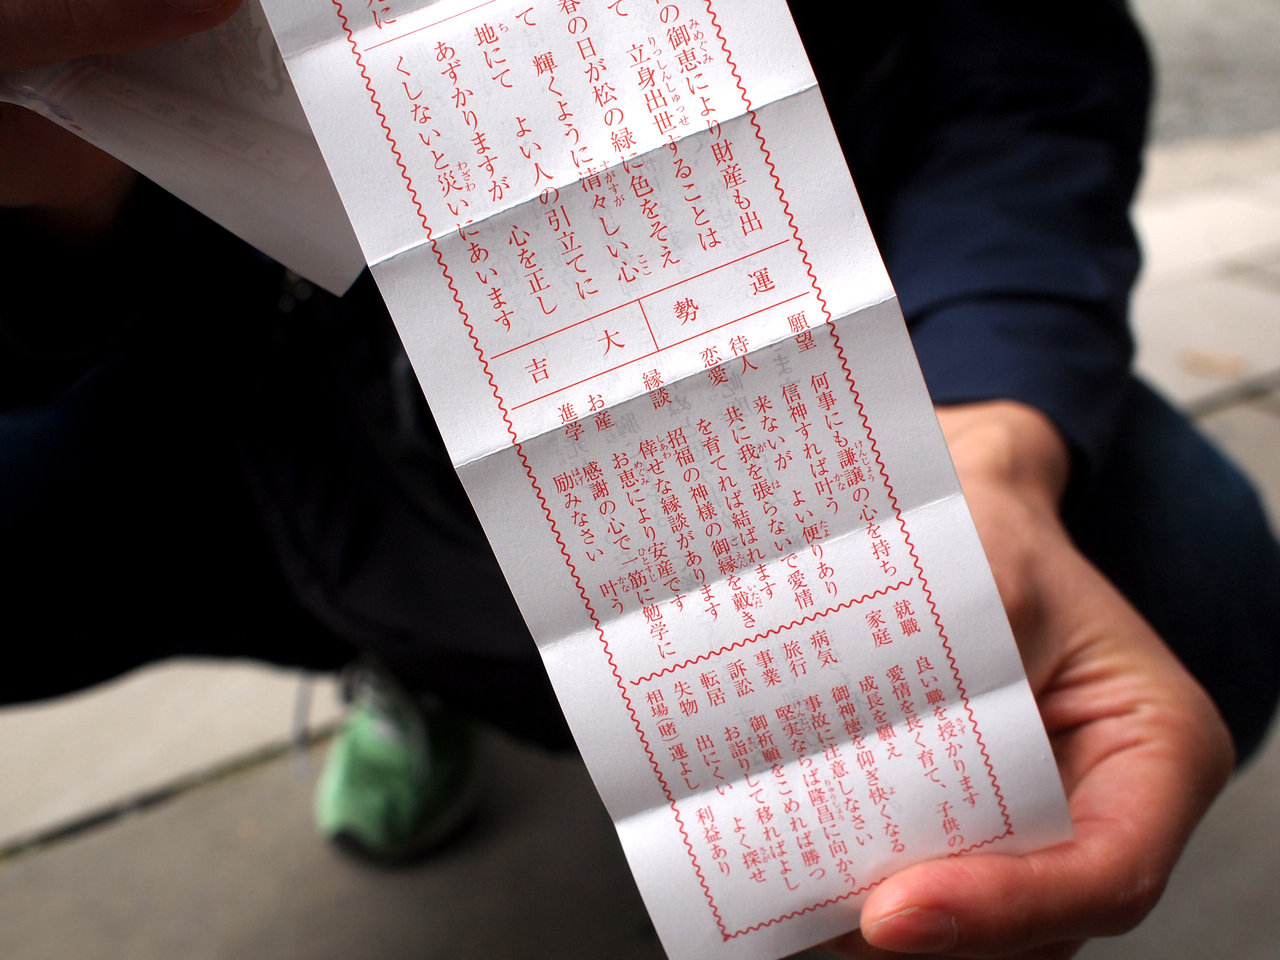 の御恵により財産も出
て 立身出世することは
春の日が松の緑に色をそえ
て 輝くように清々しい心
地にて よい人の引立てに
あずかりますが 心を正し
くしないと災いにあいます
運勢
大吉
願望 何事にも謙譲の心を持ち
信神すれば叶う
待人 来ないが よい便りあり
恋愛 共に我を張らないで愛情
を育てれば結ばれます
縁談 招福の神様の御縁を戴き
倖せな縁談があります
お産 お恵により安産です
進学 感謝の心で一筋に勉学に
励みなさい 叶う
就職 良い職を授かります
家庭 愛情を長く育て、子供の
成長を願え
病気 御神徳を仰ぎ快くなる
旅行 事故に注意しなさい
事業 堅実ならば隆昌に向かう
訴訟 御祈願をこめれば勝つ
転居 お詣りして移ればよし
失物 出にくい よく探せ
相場(賭) 運よし 利益あり